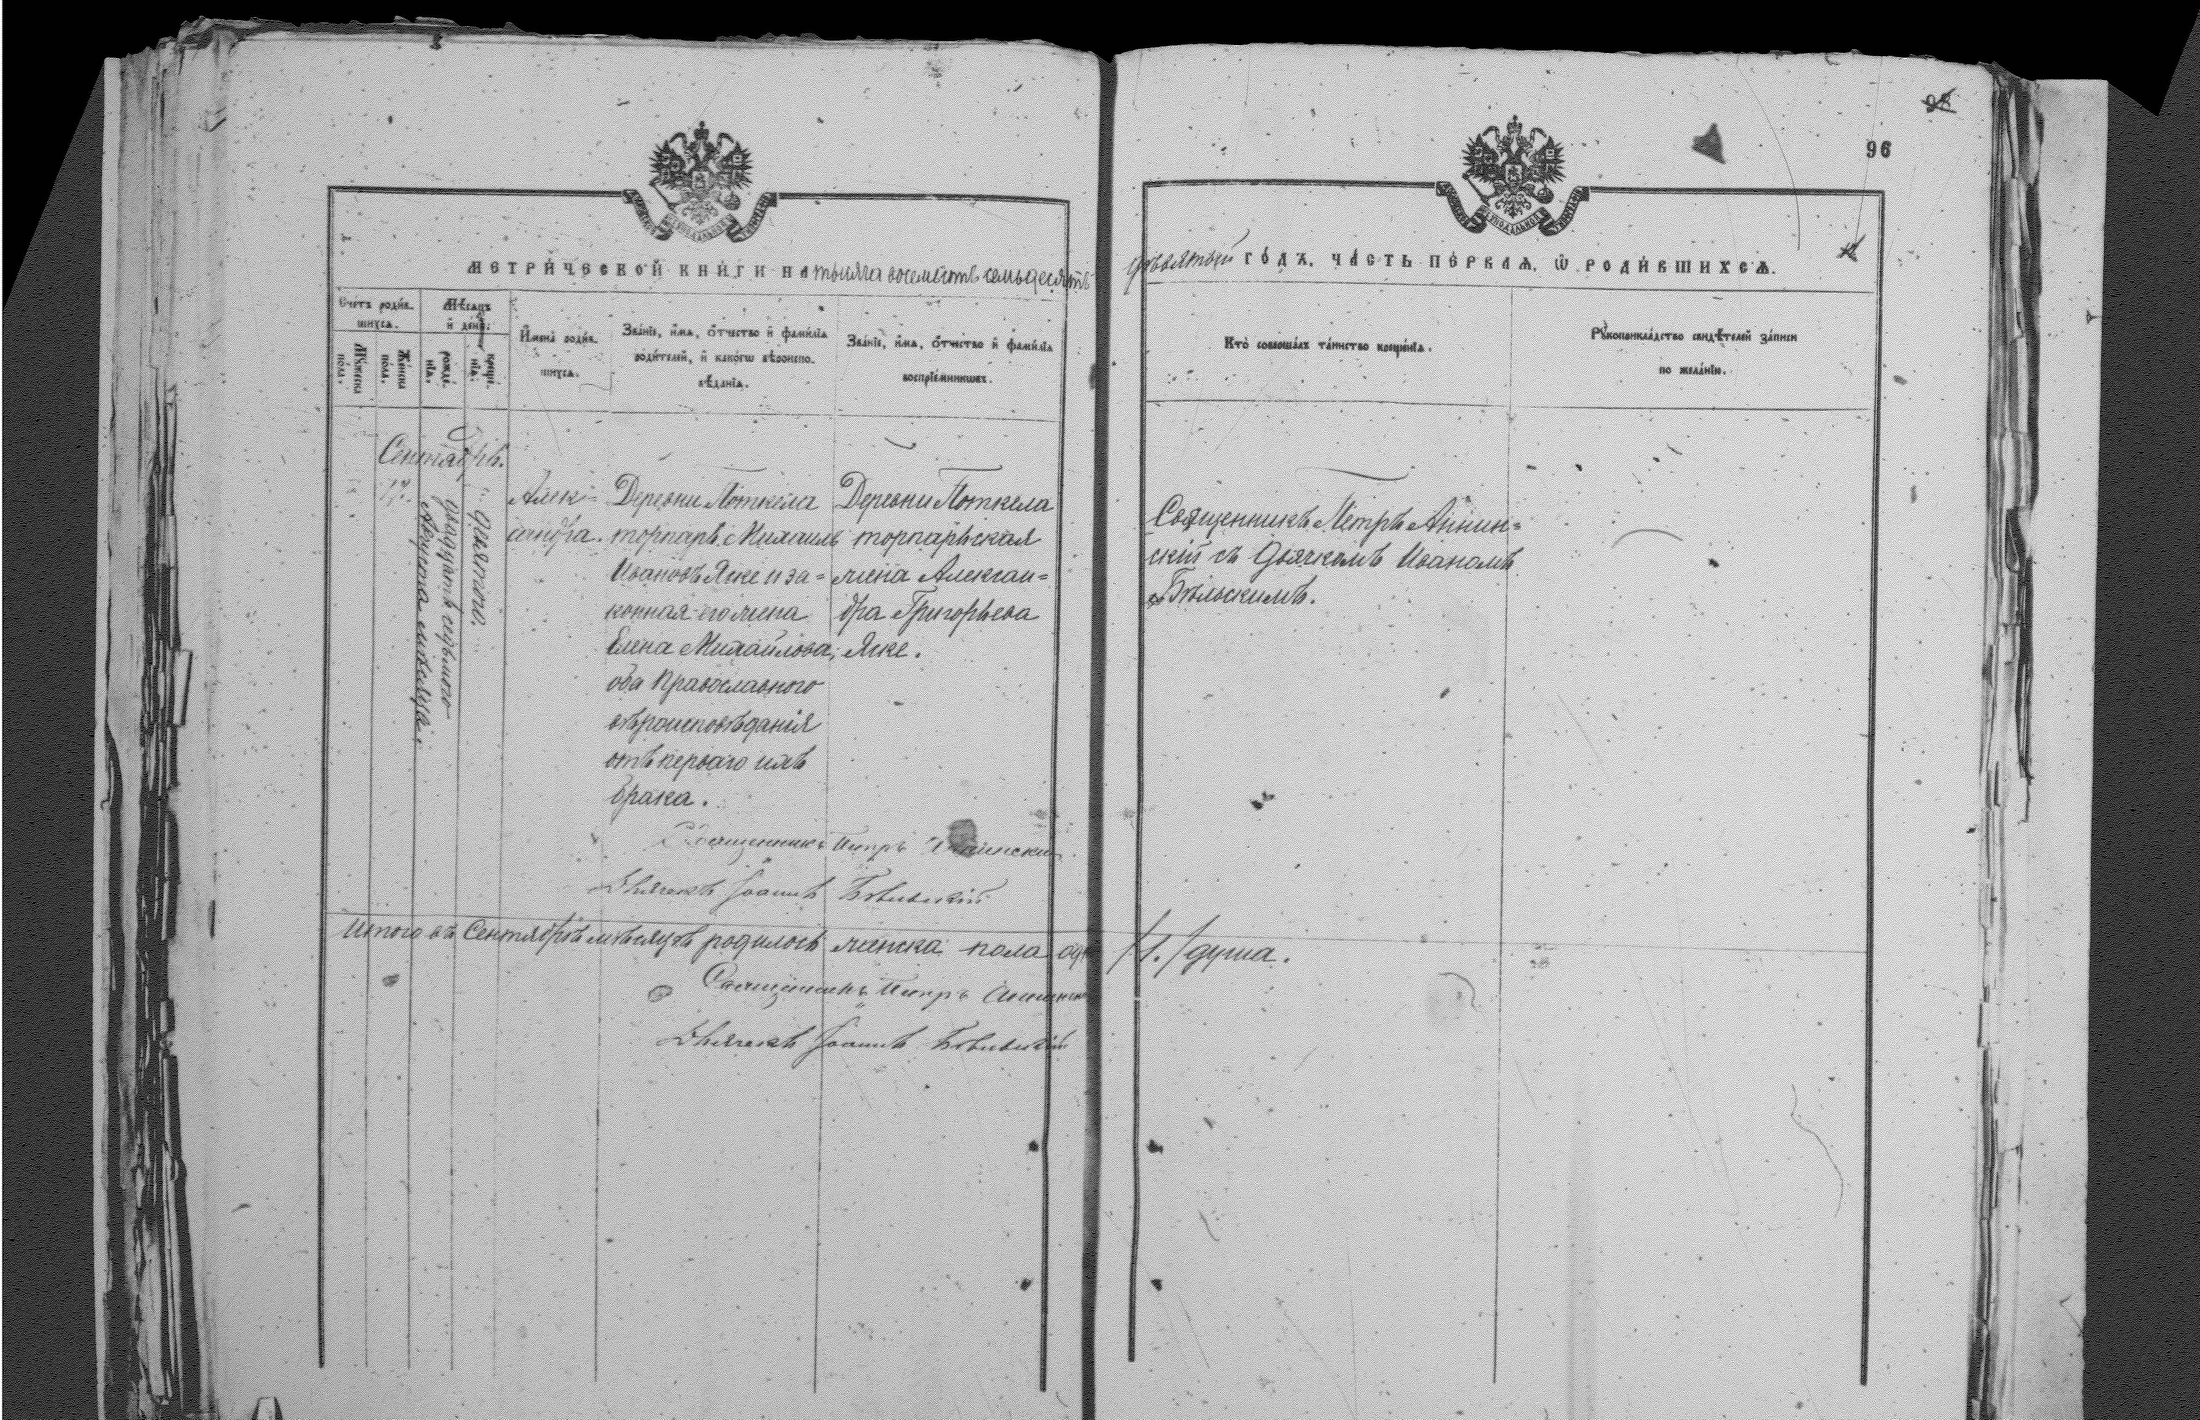 98
96
МЕТРИ́ЧЕСКОЙ КНИ́ГИ НА тысяча восемьсотъ семьдесятъ
девятый ГО́ДЪ, ЧА́СТЬ ПЕ́РВАѦ, Ѿ РОДИ́ВШИХСѦ.
Счетъ роди́в-
шихсѧ.
Мꙋ́жеска
по́ла.
Же́нска
по́ла.
Мѣ́сѧцъ
и҆ де́нь.
рожде́-
нїѧ.
креще́-
нїѧ.
И҆мена̀ роди́в-
шихсѧ.
Зва́нїе, и҆́мѧ, ѻ҆́тчество и҆ фами́лїѧ
роди́телей, и҆ како́гѡ вѣроисповѣ́данїѧ.
Зва́нїе, и҆́мѧ, ѻ҆́тчество и҆ фами́лїѧ
воспрїе́мникѡвъ.
Кто̀ соверша́лъ та́инство креще́нїѧ.
Рꙋкоприкла́дство свидѣ́телей за́писи
по жела́нїю.
Сентябрь.
17.
двадцать седьмого
Августа мѣсяца.
девятого.
Алек-
сандра.
Деревни Поткела
торпарь Михаилъ
Ивановъ Яске и за-
конная его жена
Елена Михайлова,
оба Православного
вѣроисповѣданія
отъ перваго ихъ
брака.
Деревни Поткела
торпарьская
жена Александ-
ра Григорьева
Яске.
Священникъ Петръ Аннин-
скій съ Дьячкомъ Иваномъ
Бѣльскимъ.
Священникъ Петръ Аннинскій
Дьячекъ Іоаннъ Бѣльскій
Итого въ Сентябрѣ мѣсяцѣ родилось женска пола одна /1./ душа.
Священникъ Петръ Аннинскій
Дьячекъ Іоаннъ Бѣльскій